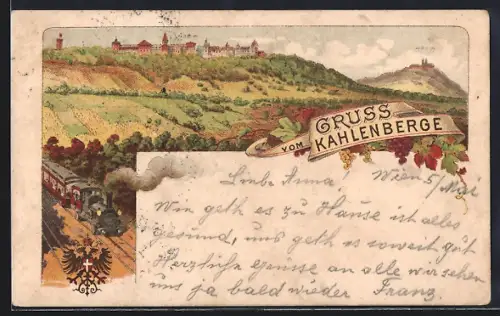 GRUSS
VOM KAHLENBERGE
Liebe Anna, Wien 5/Mai
Wie geth es zu Hause ist alles
Gesund, uns geth es soweit gut
Herzliche Grüsse an alle wir sehen
uns ja bald wieder Franz.